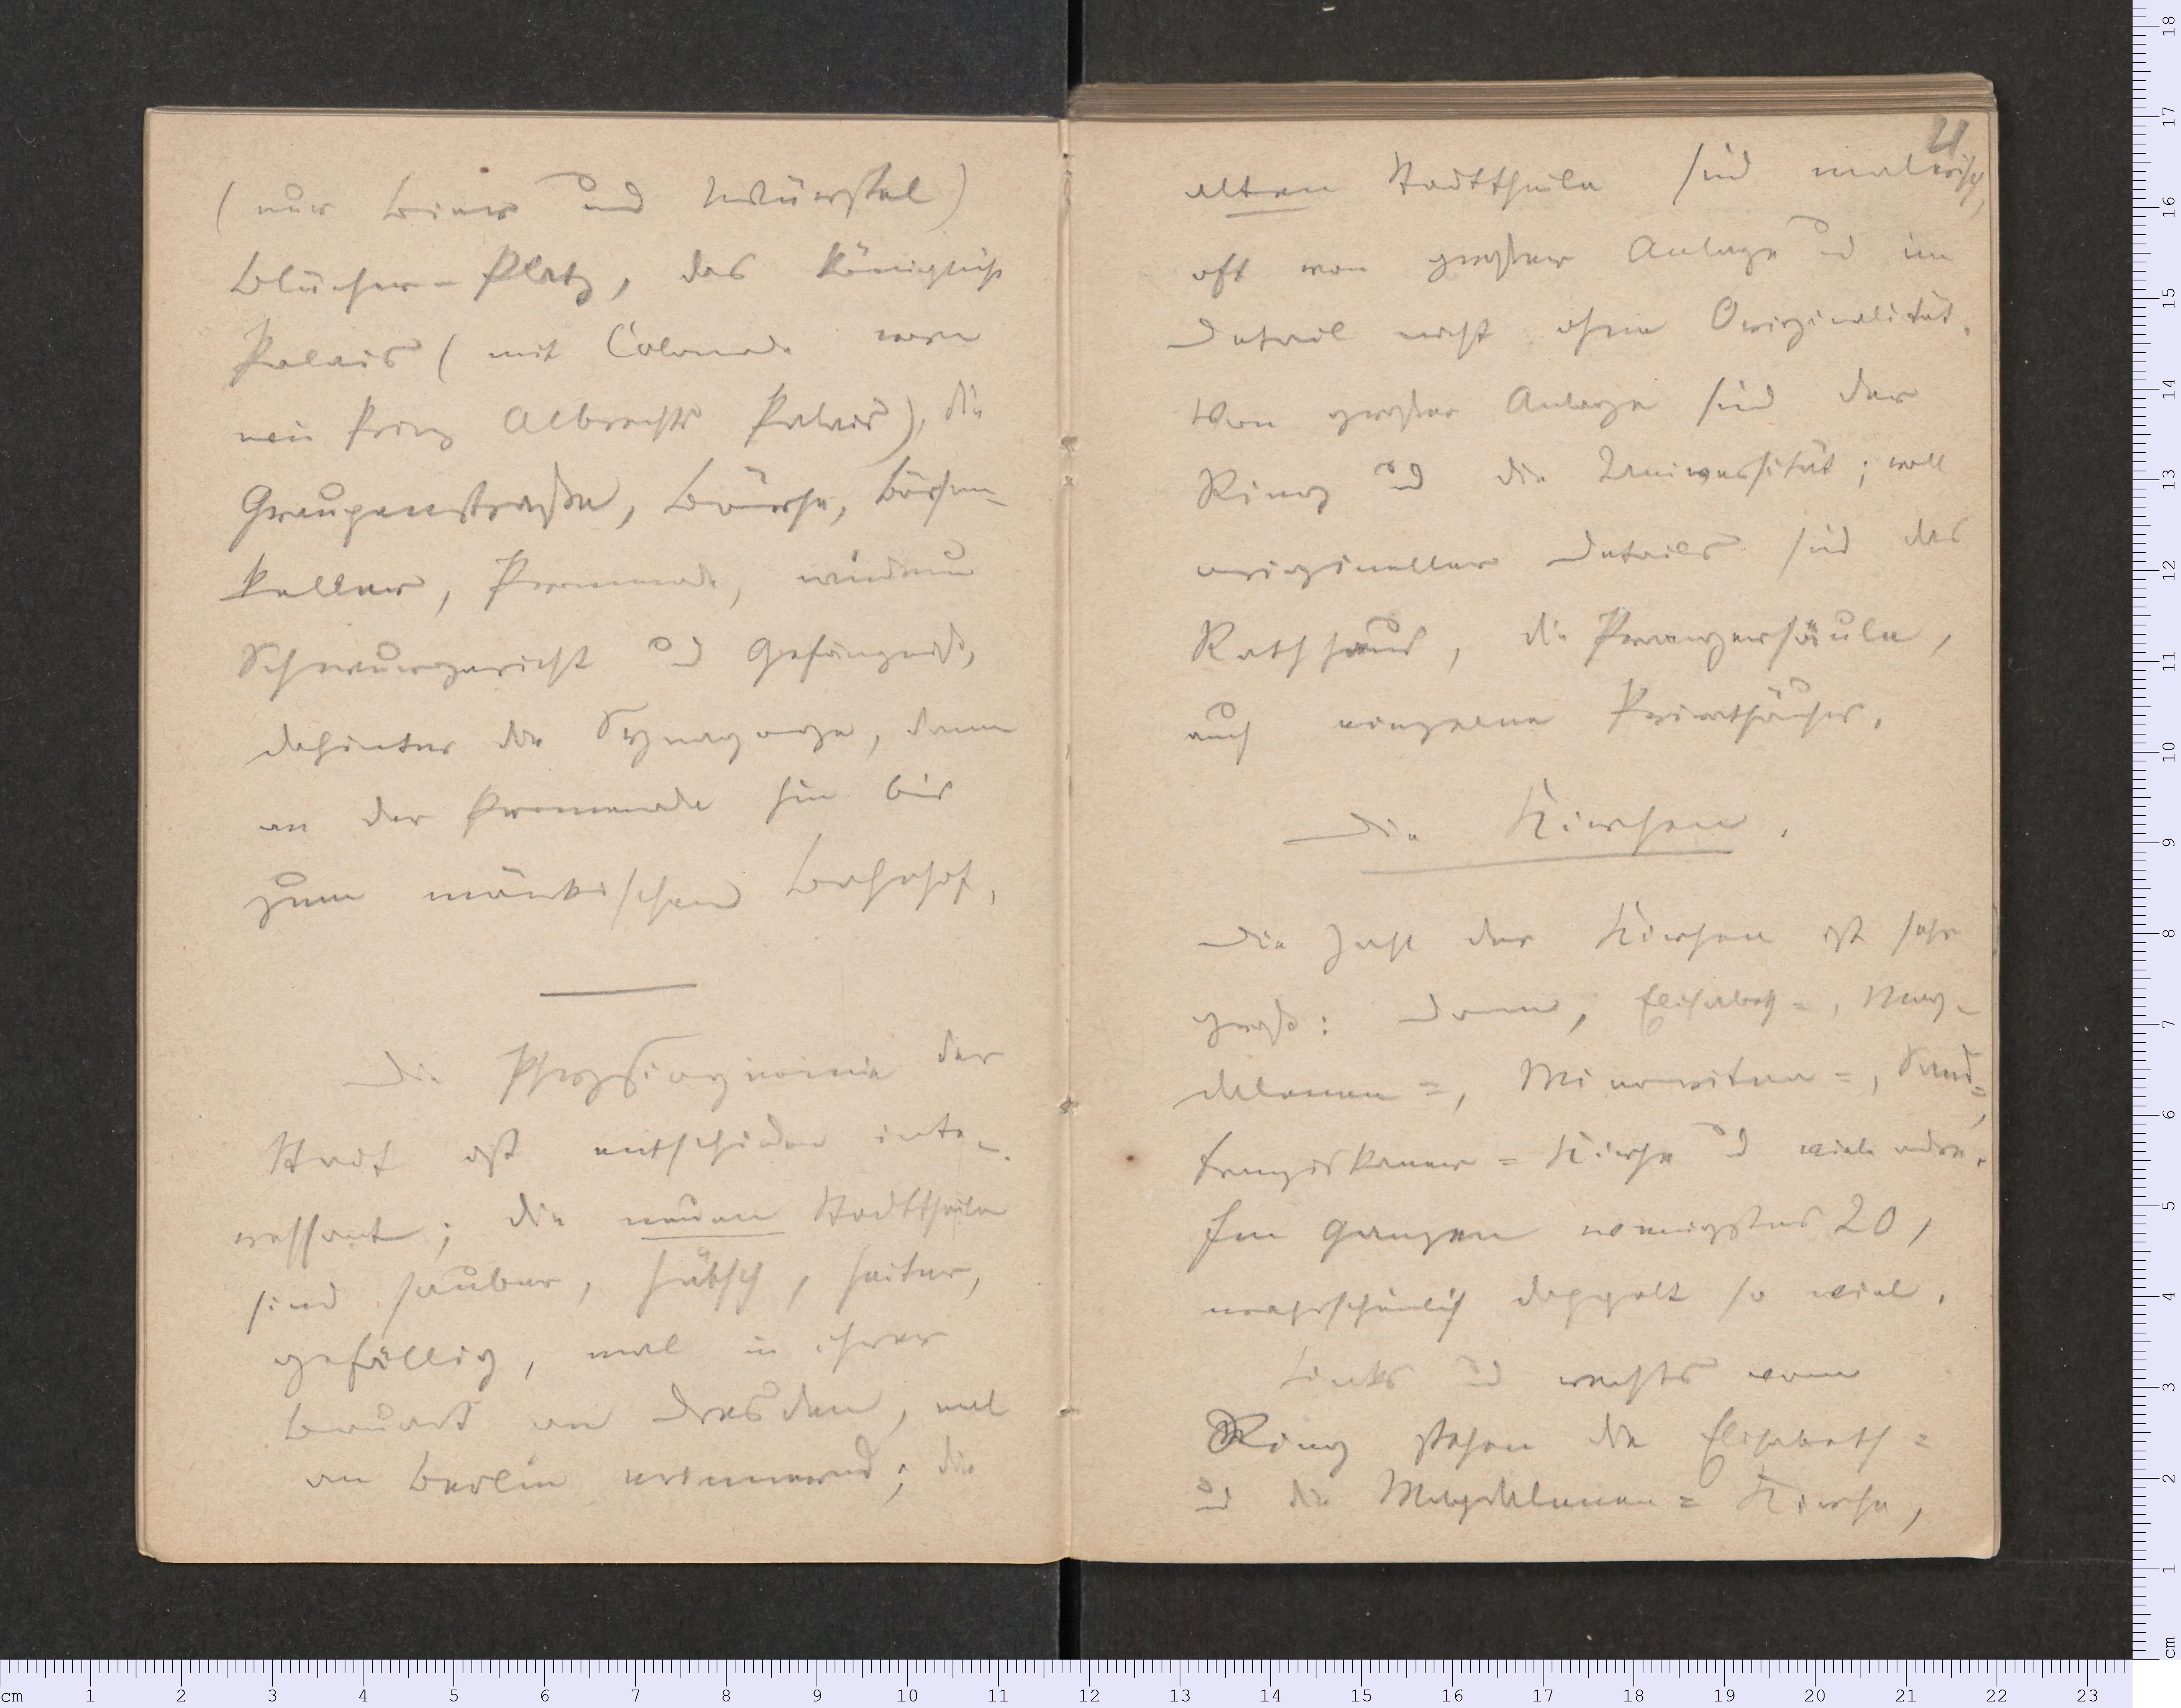 (nur Bier und Würstel)
Blücher-Platz, das Königliche
Palais (mit Colonade
Prinz Albrechts Palais), die
Graupenstraße, Börse, Börsen-
keller, Promenade, wiederum
Schwurgericht und Gefängniß,
dahinter die Synagoge, dann
an der Promenade hin bis
zum märkischen Bahnhof.
Die Physiognomie der
Stadt ist entschieden inte-
ressant; die neuen Stadttheile
sind sauber, hübsch, heiter,
gefällig, mal in ihrer
Bauart an Dresden, mal
an Berlin erinnernd; die
alten Stadttheile sind malerisch,
oft von großer Anlage und im
Detail nicht ohne Originalität.
Von großer Anlage sind der
Ring und die Universität; voll
origineller Details sind das
Rathhaus, die Prangersäule,
auch einzelne Privathäuser.
Die Kirchen.
Die Zahl der Kirchen ist sehr
groß: Dom, Elisabeth=, Mag-
dalenen=, Minoriten=, Sand=,
Franziskaner=Kirche und viele andre.
Im Ganzen wenigstens 20,
wahrscheinlich doppelt so viel.
Links und rechts vom
Ring stehen die Elisabeth=
und die Magdalenen=Kirche,